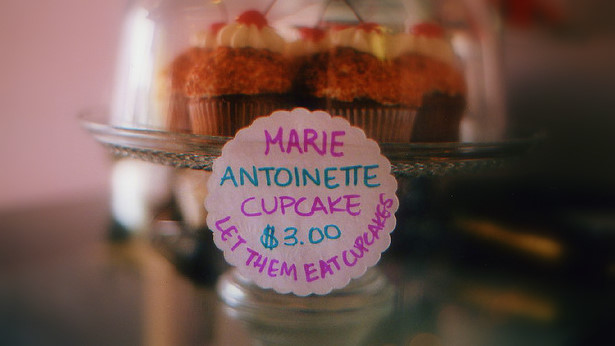 MARIE
ANTOINETTE
CUPCAKE
$3.00
LET THEM EAT CUPCAKES